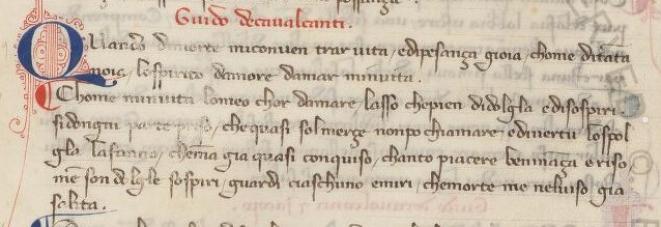 Guido decavalcanti.
Quando dimorte miconven trar vita, edipesança gioia, chome ditāta
noia, lospirito damore damar minvita.
Chome minvita lomeo chor damare, lasso chepien didolglia edisospiri
sidongni parte preso, chequasi solmerçe nonpo chiamare edivertu lospol
glia lafanno, chema gia quasi conquiso, chanto piacere beninança eriso,
me son dolglie sospiri, guardi ciaschuno emiri, chemorte me nelviso gia
salita.